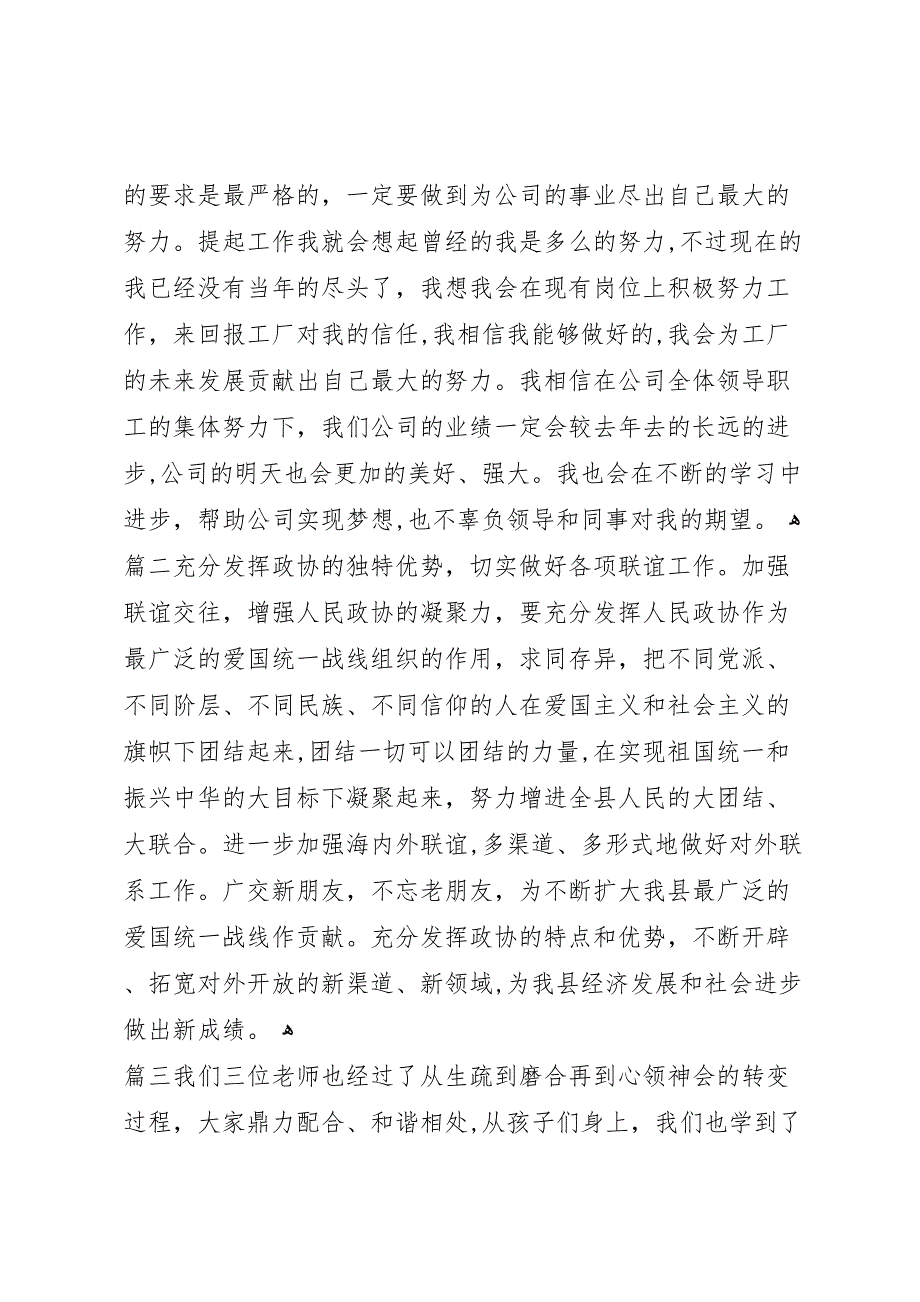 的要求是最严格的，一定要做到为公司的事业尽出自己最大的
努力。提起工作我就会想起曾经的我是多么的努力,不过现在的
我已经没有当年的尽头了，我想我会在现有岗位上积极努力工
作，来回报工厂对我的信任,我相信我能够做好的,我会为工厂
的未来发展贡献出自己最大的努力。我相信在公司全体领导职
工的集体努力下，我们公司的业绩一定会较去年去的长远的进
步,公司的明天也会更加的美好、强大。我也会在不断的学习中
进步，帮助公司实现梦想,也不辜负领导和同事对我的期望。 ﻫ
篇二充分发挥政协的独特优势，切实做好各项联谊工作。加强
联谊交往，增强人民政协的凝聚力，要充分发挥人民政协作为
最广泛的爱国统一战线组织的作用，求同存异，把不同党派、
不同阶层、不同民族、不同信仰的人在爱国主义和社会主义的
旗帜下团结起来,团结一切可以团结的力量,在实现祖国统一和
振兴中华的大目标下凝聚起来，努力增进全县人民的大团结、
大联合。进一步加强海内外联谊,多渠道、多形式地做好对外联
系工作。广交新朋友，不忘老朋友，为不断扩大我县最广泛的
爱国统一战线作贡献。充分发挥政协的特点和优势，不断开辟
、拓宽对外开放的新渠道、新领域,为我县经济发展和社会进步
做出新成绩。 ﻫ
篇三我们三位老师也经过了从生疏到磨合再到心领神会的转变
过程，大家鼎力配合、和谐相处,从孩子们身上，我们也学到了